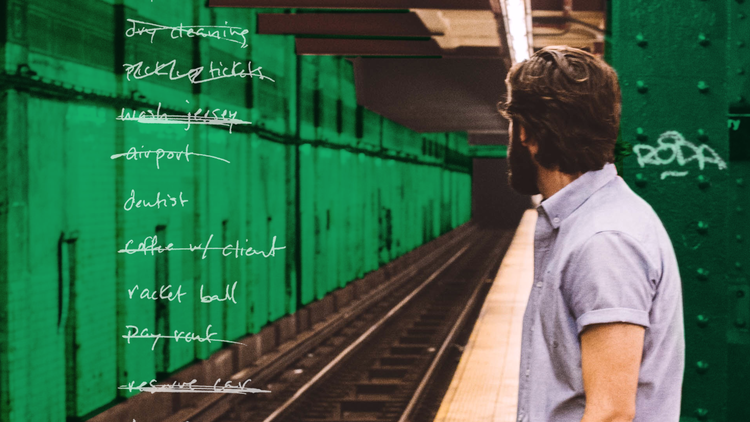 dry cleaning
pick up tickets
wash jersey
airport
dentist
coffee w/ client
racket ball
pay rent
reserve car
RODA